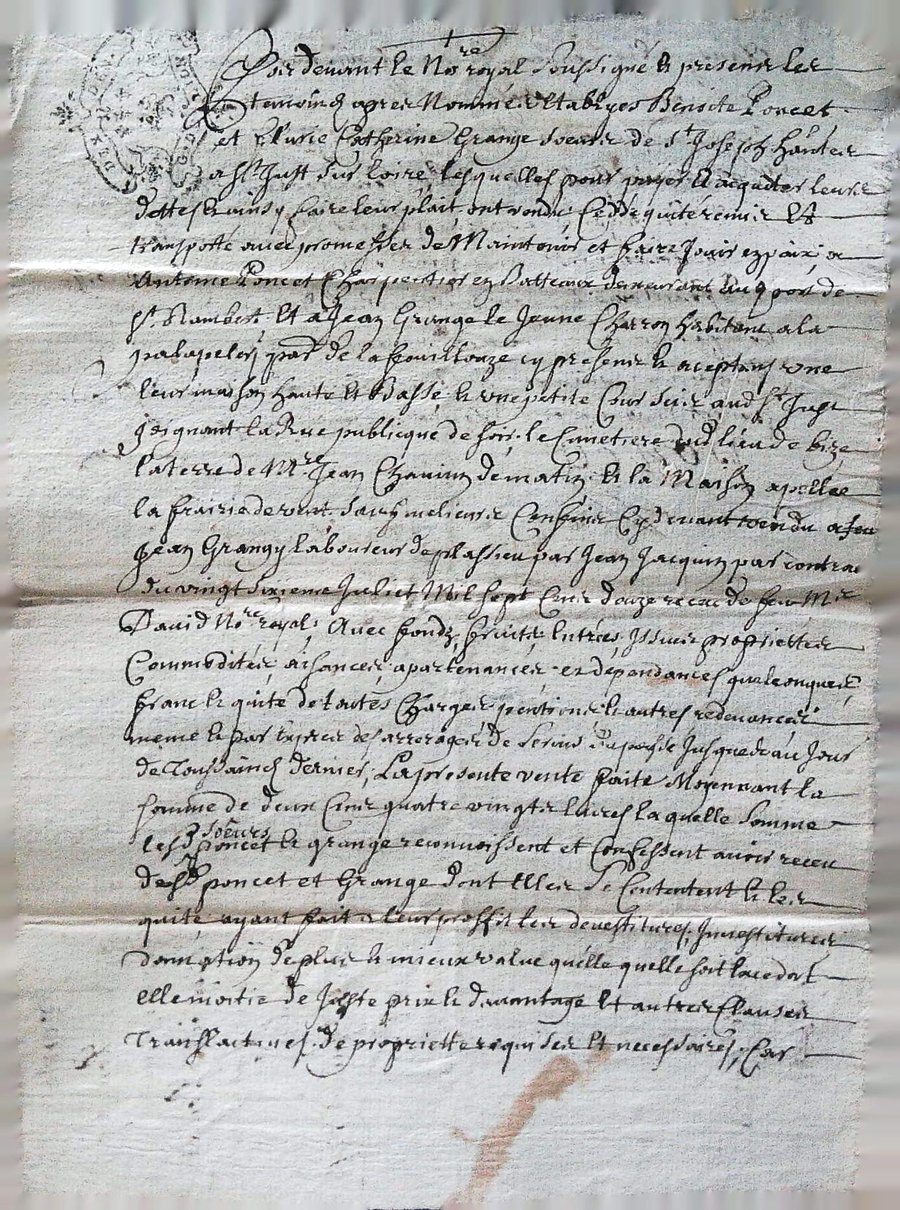 Par devant le No.re royal soussigné & presents les
temoins apres Nommés Etablyes Benoite Poncet
et Marie Catherine Grange soeurs de St Joseph
a St Just sur loire, lesquelles pour payer & aquiter leurs
dettes & ainsy faire leur plait ont vendu Cedde quité remis Et
transporté avec promesses de Maintenir et faire Jouir en paix, a
Antoine Poncet Charpentier en Batteaux demeurant au port de
St Rambert Et a Jean Grange le Jeune Charron habitant a la
par. de la fouillouze cy presents & aceptans une
leur maison Haute Et Basse, & une petite Cour scize aud St Just
Joignant la Rue publicque de soir, le Cimetiere dud lieu de bize
la terre de Mre Jean de matin & la Maison apellée
la frairie de vent sauf melieurs Confins Cy devant vendu a feu
Jean Grangy laboureur de plassieu par Jean Jacquin par contrat
du vingt sixieme Juliet Mil sept Cent douze receu de feu Mre
David No.re royal, Avec fonds, fruits, Entrées, Issues proprietter
Commodités, aisances, apartenances et dépendances quelconques,
franc & quite de toutes Charges pentions & autres redevances
meme & par Exprés des arrerages de Servis du passé Jusques au Jour
de Toussaincts dernier, La presente vente faite Moyennant la
somme de deux Cent quatre vingts livres la quelle somme
lesd soeurs poncet & grange reconnoissent et Confessent avoir receu
desd poncet et Grange dont Elles se Contentent & les
quite, ayant fait a leur proffit les devestitures, Investitures
donnation de plus & mieux value qu'elle quelle soit
de Juste prix & davantage Et autres Clauses
Translactives de propriette requises Et necessaires, Car